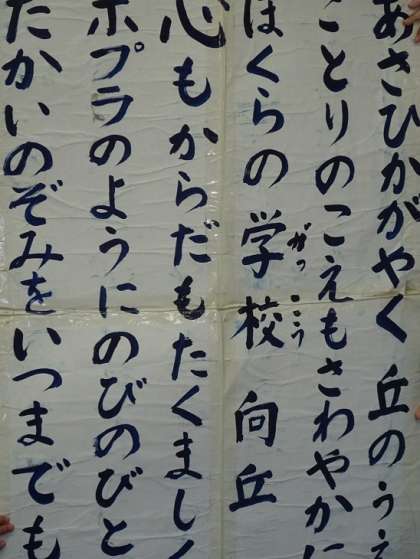 あさひかがやく 丘のうえ
ことりのこえもさわやかに
ぼくらの学校 向丘
がっこう
心もからだもたくましく
ポプラのようにのびのびと
たかいのぞみをいつまでも